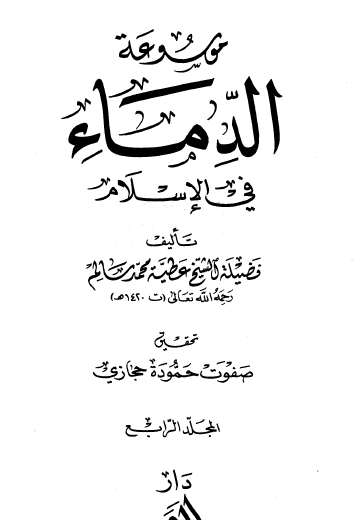 موسوعة
الدِّمَاءِ
في الإسلام
تأليف
فضيلة الشيخ عطية محمد سالم
رحمه الله تعالى (ت ١٤٢٠هـ)
تحقيق
صفوت حمودة حجازي
المجلد الرابع
دار